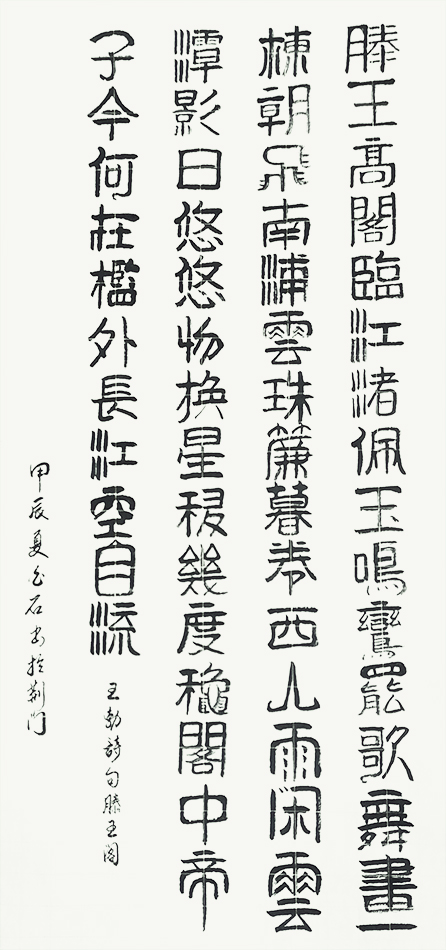 滕王高閣臨江渚佩玉鳴鸞罷歌舞畫
棟朝飛南浦雲珠簾暮卷西山雨閑雲
潭影日悠悠物換星移幾度穐閣中帝
子今何在檻外長江空自流
王勃詩句滕王閣
甲辰夏石書於荊門